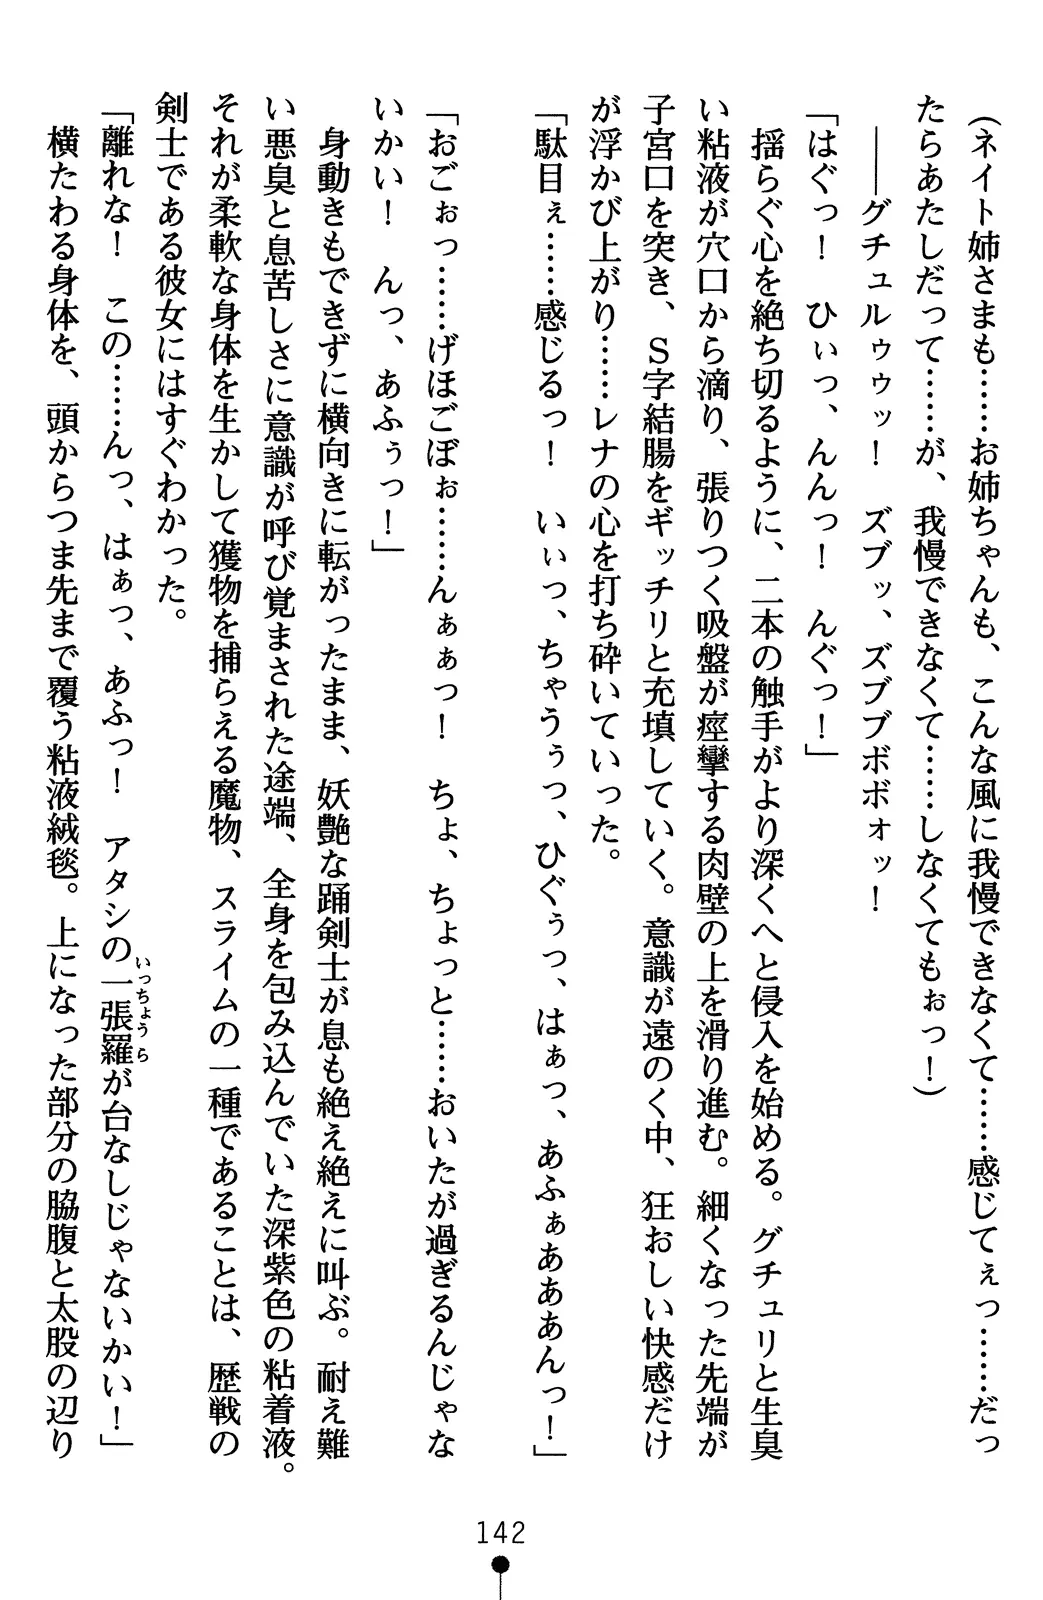 （ネイト姉さまも……お姉ちゃんも、こんな風に我慢できなくて……感じてぇっ……だっ
たらあたしだって……が、我慢できなくて……しなくてもぉっ！）
――グチュルゥゥッ！　ズブッ、ズブブボボォッ！
「はぐっ！　ひぃっ、んんっ！　んぐっ！」
揺らぐ心を絶ち切るように、二本の触手がより深くへと侵入を始める。グチュリと生臭
い粘液が穴口から滴り、張りつく吸盤が痙攣する肉壁の上を滑り進む。細くなった先端が
子宮口を突き、Ｓ字結腸をギッチリと充填していく。意識が遠のく中、狂おしい快感だけ
が浮かび上がり……レナの心を打ち砕いていった。
「駄目ぇ……感じるっ！　いぃっ、ちゃうぅっ、ひぐぅっ、はぁっ、あふぁあああんっ！」
「おごぉっ……げほごぼぉ……んぁぁっ！　ちょ、ちょっと……おいたが過ぎるんじゃな
いかい！　んっ、あふぅっ！」
身動きもできずに横向きに転がったまま、妖艶な踊剣士が息も絶え絶えに叫ぶ。耐え難
い悪臭と息苦しさに意識が呼び覚まされた途端、全身を包み込んでいた深紫色の粘着液。
それが柔軟な身体を生かして獲物を捕らえる魔物、スライムの一種であることは、歴戦の
剣士である彼女にはすぐわかった。
「離れな！　この……んっ、はぁっ、あふっ！　アタシの一張羅（いっちょうら）が台なしじゃないかい！」
横たわる身体を、頭からつま先まで覆う粘液絨毯。上になった部分の脇腹と太股の辺り
142